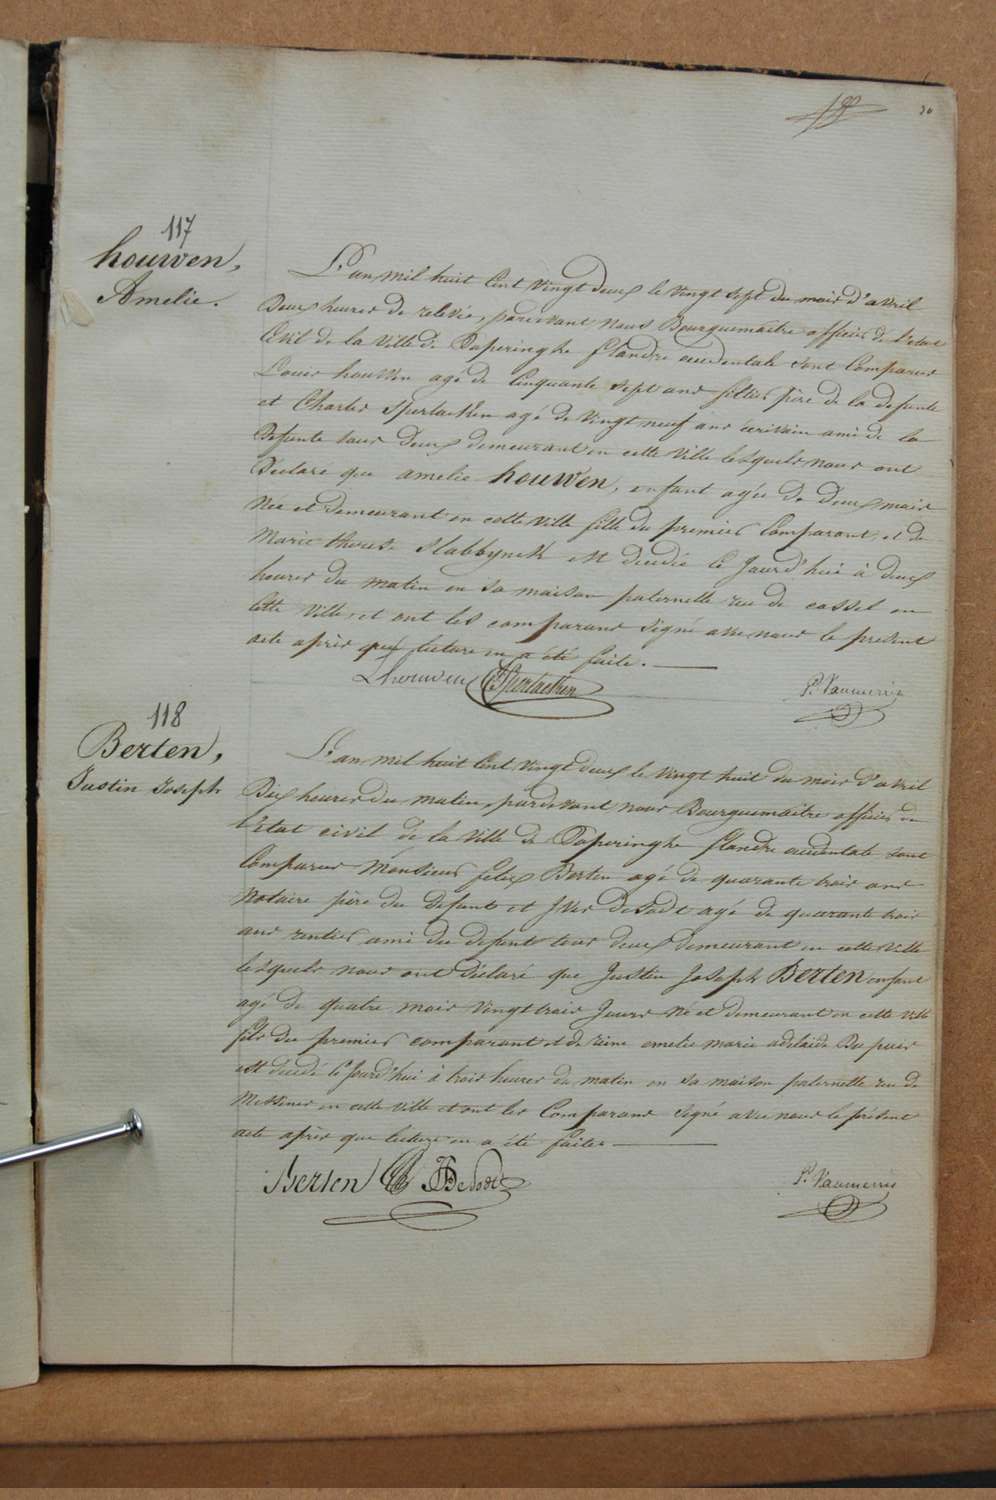 30
117
houwen,
Amelie.
L'an mil huit Cent vingt deux le vingt sept du mois d'avril
Deux heures de relevée, pardevant nous Bourguemaitre officier de l'etat
Civil de la ville de Poperinghe flandre occidentale sont Comparus
Louis houwen agé de Cinquante sept ans père de la defunte
et Charles Sperlaeken agé de vingt neuf ans ecrivain ami de la
Defunte tous Deux demeurant en cette ville lesquels nous ont
Declare que amelie houwen, enfant agée de deux mois
Née et demeurant en cette ville fille du premier Comparant, et de
Marie therese Slabbynck est decedée ce Jourd'hui à deux
heures du matin en sa maison paternelle rue de cassel en
cette ville, et ont les comparans signé avec nous le present
acte après que lecture en a été faite.
L houwen C Sperlaeken
P. Vanmerris
118
Berten,
Justin Joseph
L'an mil huit Cent vingt deux le vingt huit du mois d'avril
Dix heures du matin, pardevant nous Bourguemaitre officier de
l'Etat civil de la ville de Poperinghe flandre occidentale sont
Comparus Monsieur felix Berten agé de quarante trois ans
Notaire père du defunt et Yves Desodt agé de quarante trois
ans rentier ami du defunt tous deux demeurant en cette ville
lesquels nous ont declaré que Justin Joseph Berten enfant
agé de quatre mois vingt trois Jours né et demeurant en cette ville
fils du premier comparant et de reine amelie marie adelaide Du puis
est decedé ce Jourd'hui à trois heures du matin en sa maison paternelle rue de
Messines en cette ville et ont les Comparans signé avec nous le présent
acte après que lecture en a été faite.
Berten Desodt
P. Vanmerris